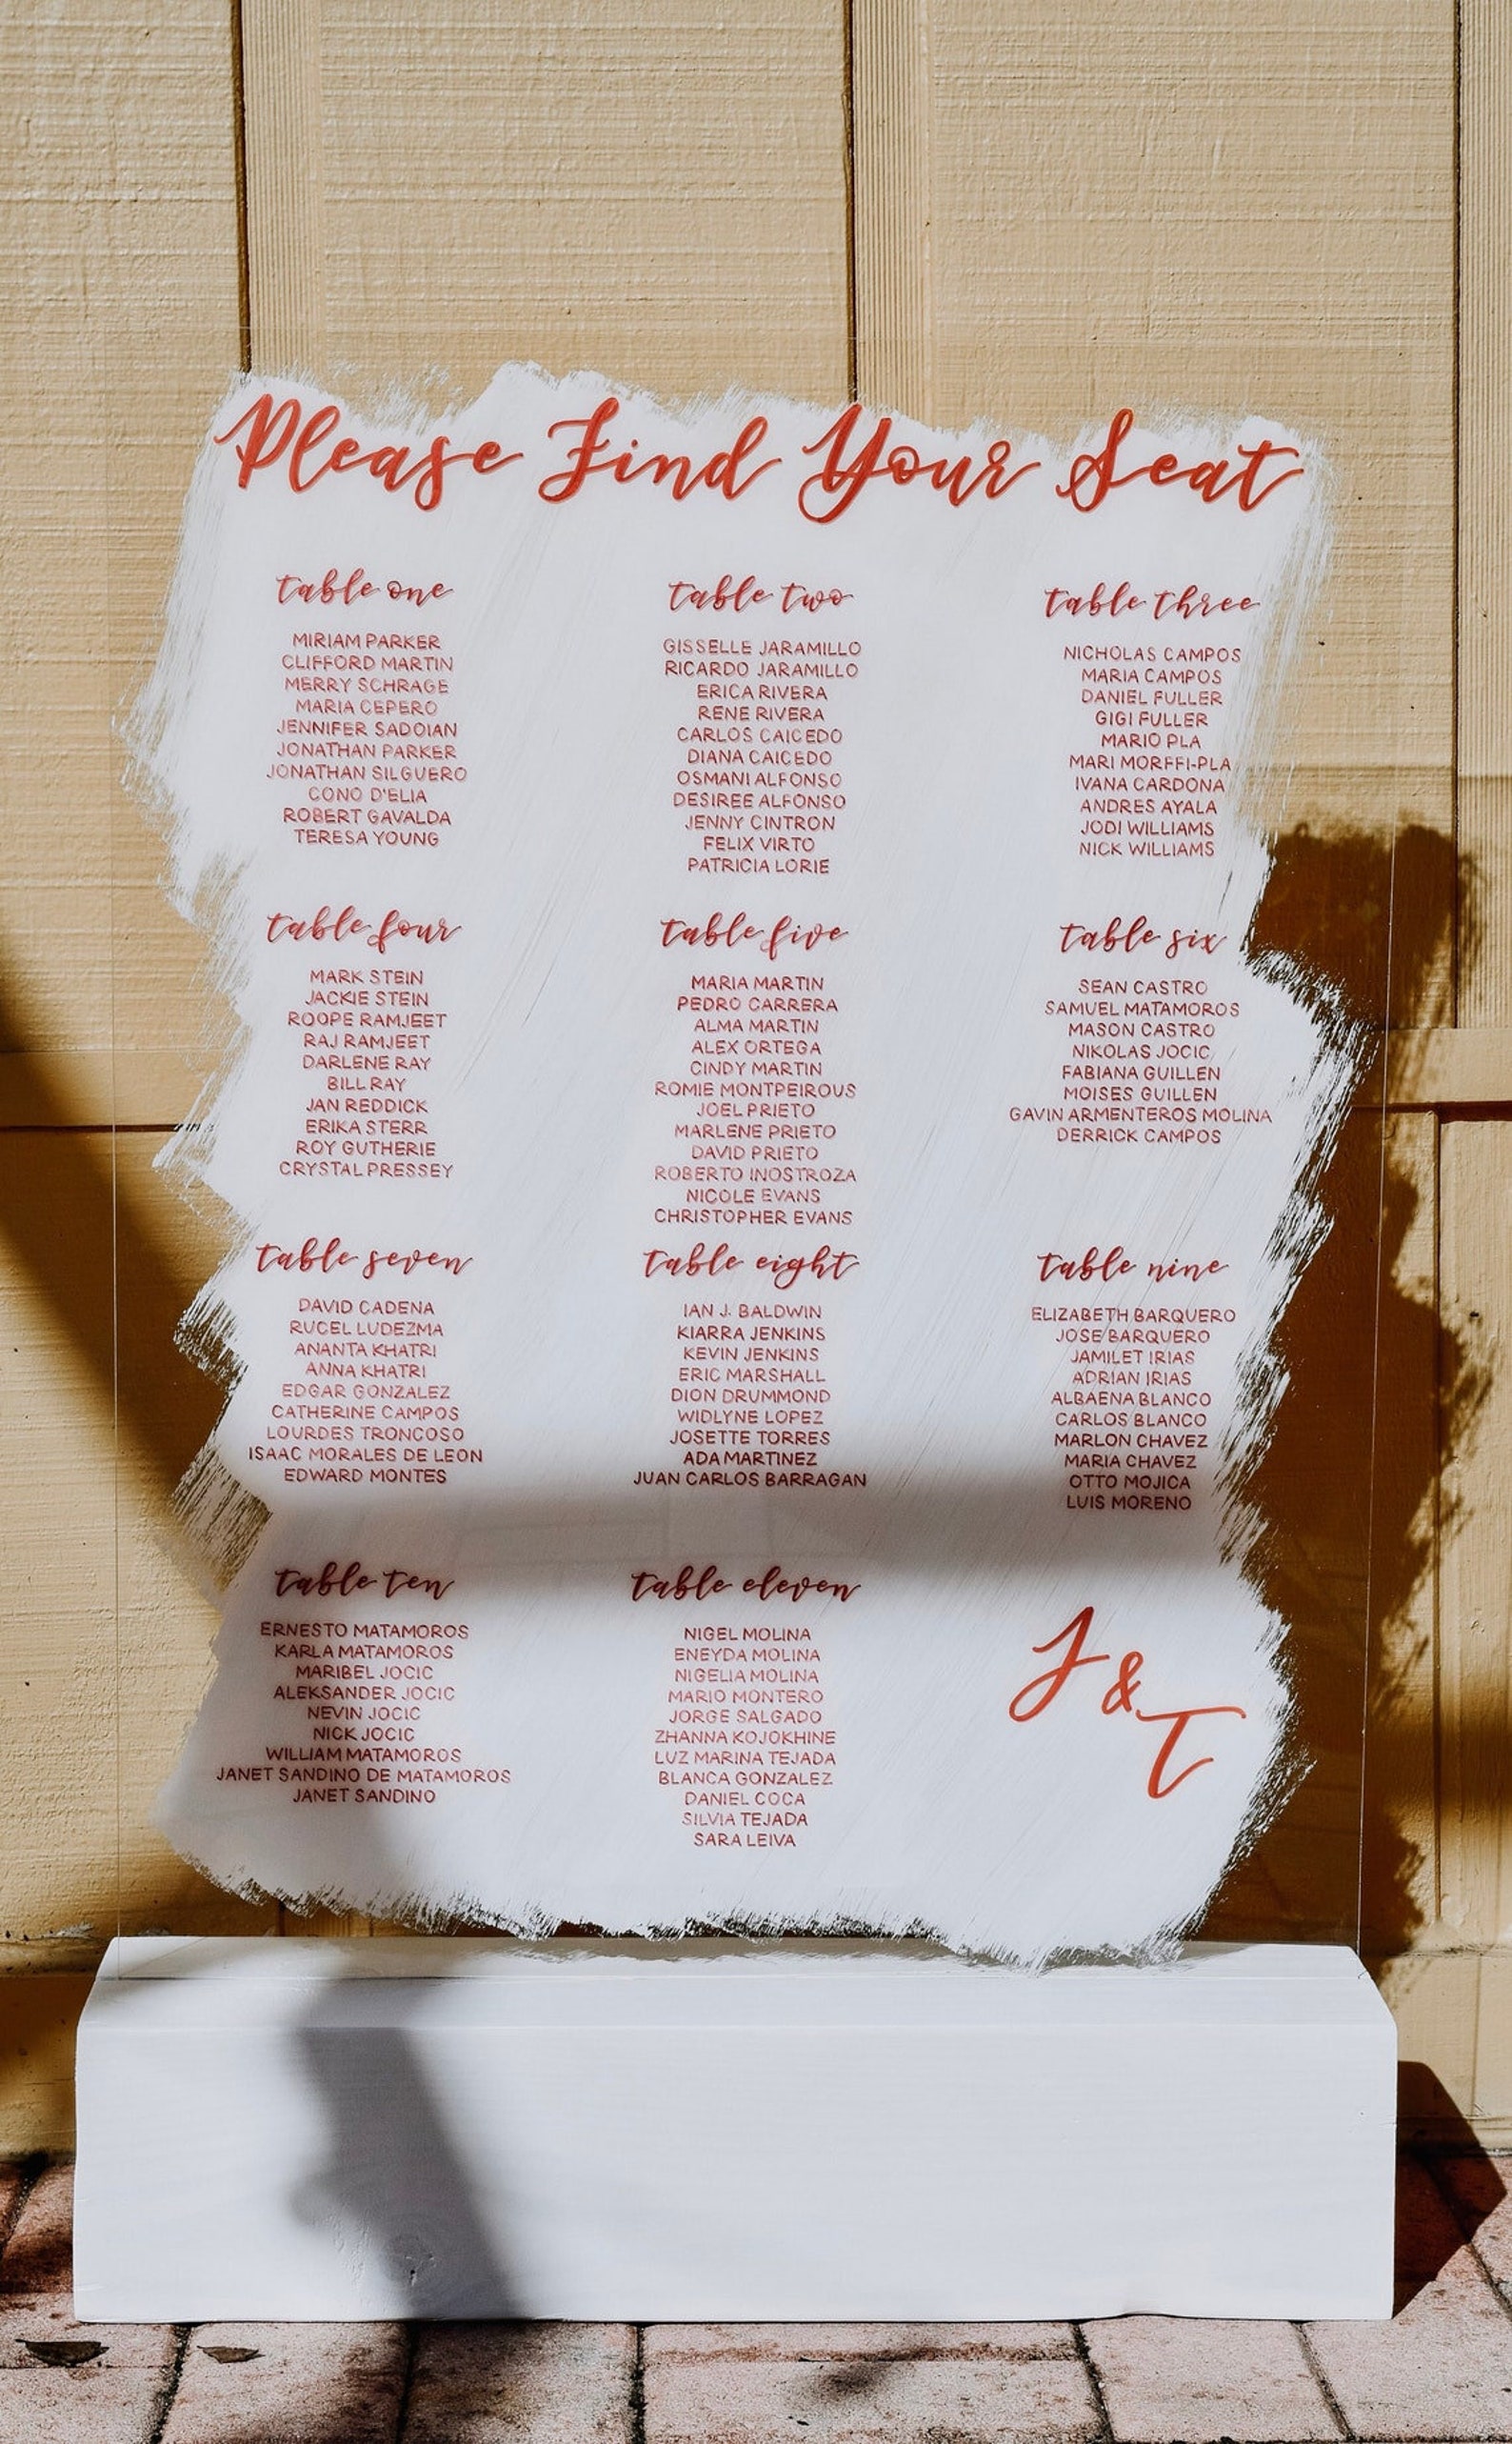 Please Find Your Seat
table one
MIRIAM PARKER
CLIFFORD MARTIN
MERRY SCHRAGE
MARIA CEPERO
JENNIFER SADOIAN
JONATHAN PARKER
JONATHAN SILGUERO
CONO D'ELIA
ROBERT GAVALDA
TERESA YOUNG
table two
GISSELLE JARAMILLO
RICARDO JARAMILLO
ERICA RIVERA
RENE RIVERA
CARLOS CAICEDO
DIANA CAICEDO
OSMANI ALFONSO
DESIREE ALFONSO
JENNY CINTRON
FELIX VIRTO
PATRICIA LORIE
table three
NICHOLAS CAMPOS
MARIA CAMPOS
DANIEL FULLER
GIGI FULLER
MARIO PLA
MARI MORFFI-PLA
IVANA CARDONA
ANDRES AYALA
JODI WILLIAMS
NICK WILLIAMS
table four
MARK STEIN
JACKIE STEIN
ROOPE RAMJEET
RAJ RAMJEET
DARLENE RAY
BILL RAY
JAN REDDICK
ERIKA STERR
ROY GUTHERIE
CRYSTAL PRESSEY
table five
MARIA MARTIN
PEDRO CARRERA
ALMA MARTIN
ALEX ORTEGA
CINDY MARTIN
ROMIE MONTPEIROUS
JOEL PRIETO
MARLENE PRIETO
DAVID PRIETO
ROBERTO INOSTROZA
NICOLE EVANS
CHRISTOPHER EVANS
table six
SEAN CASTRO
SAMUEL MATAMOROS
MASON CASTRO
NIKOLAS JOCIC
FABIANA GUILLEN
MOISES GUILLEN
GAVIN ARMENTEROS MOLINA
DERRICK CAMPOS
table seven
DAVID CADENA
RUCEL LUDEZMA
ANANTA KHATRI
ANNA KHATRI
EDGAR GONZALEZ
CATHERINE CAMPOS
LOURDES TRONCOSO
ISAAC MORALES DE LEON
EDWARD MONTES
table eight
IAN J. BALDWIN
KIARRA JENKINS
KEVIN JENKINS
ERIC MARSHALL
DION DRUMMOND
WIDLYNE LOPEZ
JOSETTE TORRES
ADA MARTINEZ
JUAN CARLOS BARRAGAN
table nine
ELIZABETH BARQUERO
JOSE BARQUERO
JAMILET IRIAS
ADRIAN IRIAS
ALBAENA BLANCO
CARLOS BLANCO
MARLON CHAVEZ
MARIA CHAVEZ
OTTO MOJICA
LUIS MORENO
table ten
ERNESTO MATAMOROS
KARLA MATAMOROS
MARIBEL JOCIC
ALEKSANDER JOCIC
NEVIN JOCIC
NICK JOCIC
WILLIAM MATAMOROS
JANET SANDINO DE MATAMOROS
JANET SANDINO
table eleven
NIGEL MOLINA
ENEYDA MOLINA
NIGELIA MOLINA
MARIO MONTERO
JORGE SALGADO
ZHANNA KOJOKHINE
LUZ MARINA TEJADA
BLANCA GONZALEZ
DANIEL COCA
SILVIA TEJADA
SARA LEIVA
J & T